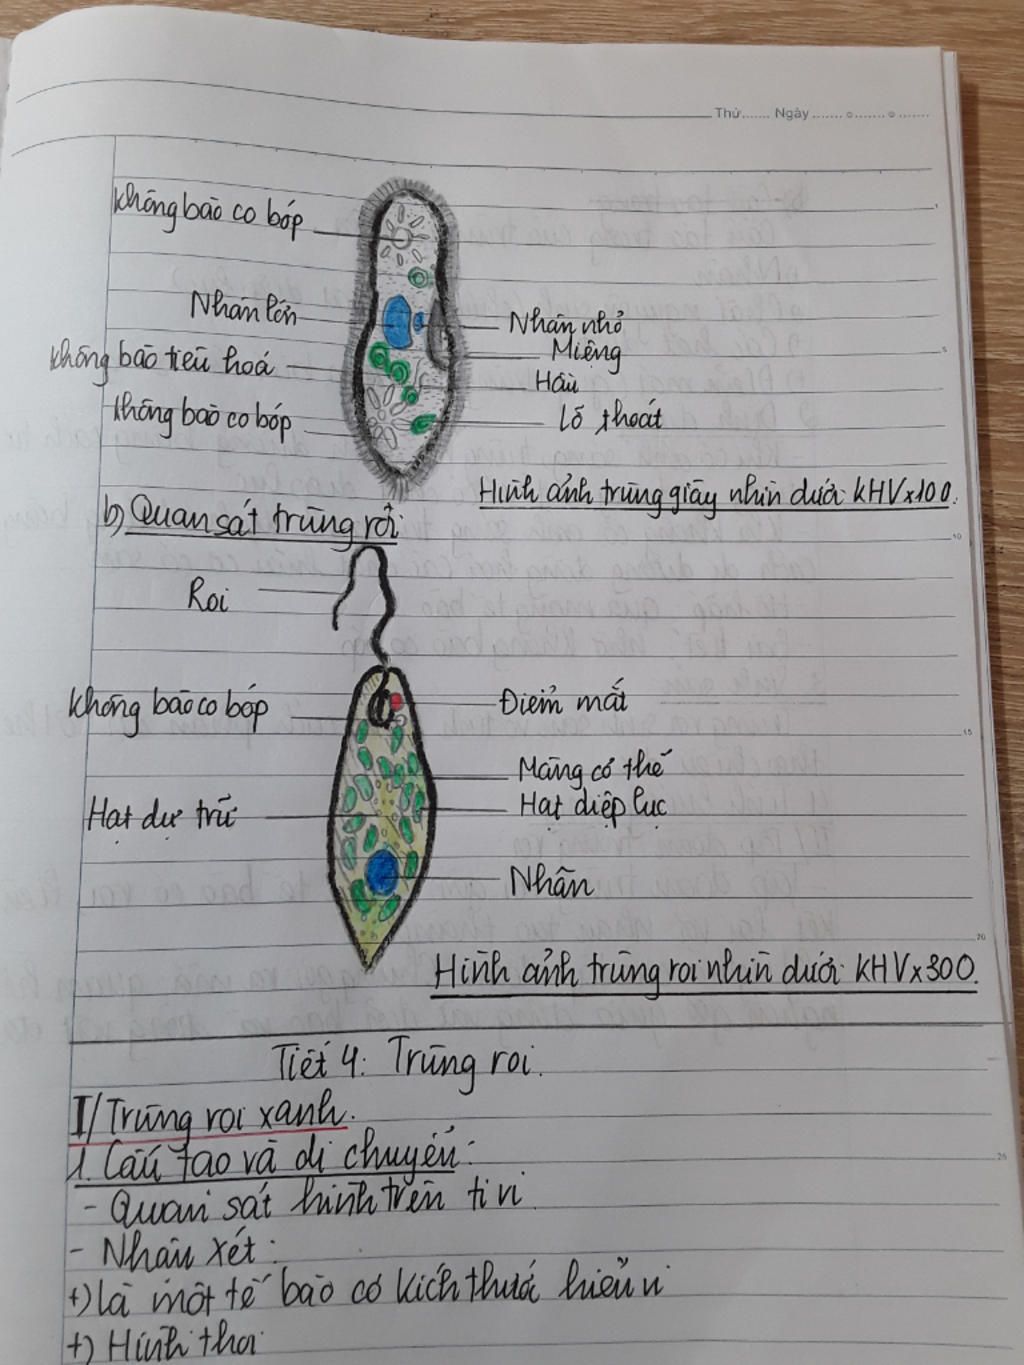 Thứ....... Ngày ....... o ....... o .......
Không bào co bóp
Nhân lớn
Nhân nhỏ
Miệng
Không bào tiêu hoá
Hầu
Không bào co bóp
Lỗ thoát
Hình ảnh trùng giày nhìn dưới KHVx100.
b) Quan sát trùng roi
Roi
Không bào co bóp
Điểm mắt
Màng cơ thể
Hạt diệp lục
Hạt dự trữ
Nhân
Hình ảnh trùng roi nhìn dưới KHVx300.
Tiết 4: Trùng roi.
I/ Trùng roi xanh.
1. Cấu tạo và di chuyển:
- Quan sát hình trên ti vi
- Nhận xét:
+) Là một tế bào có kích thước hiển vi
+) Hình thoi